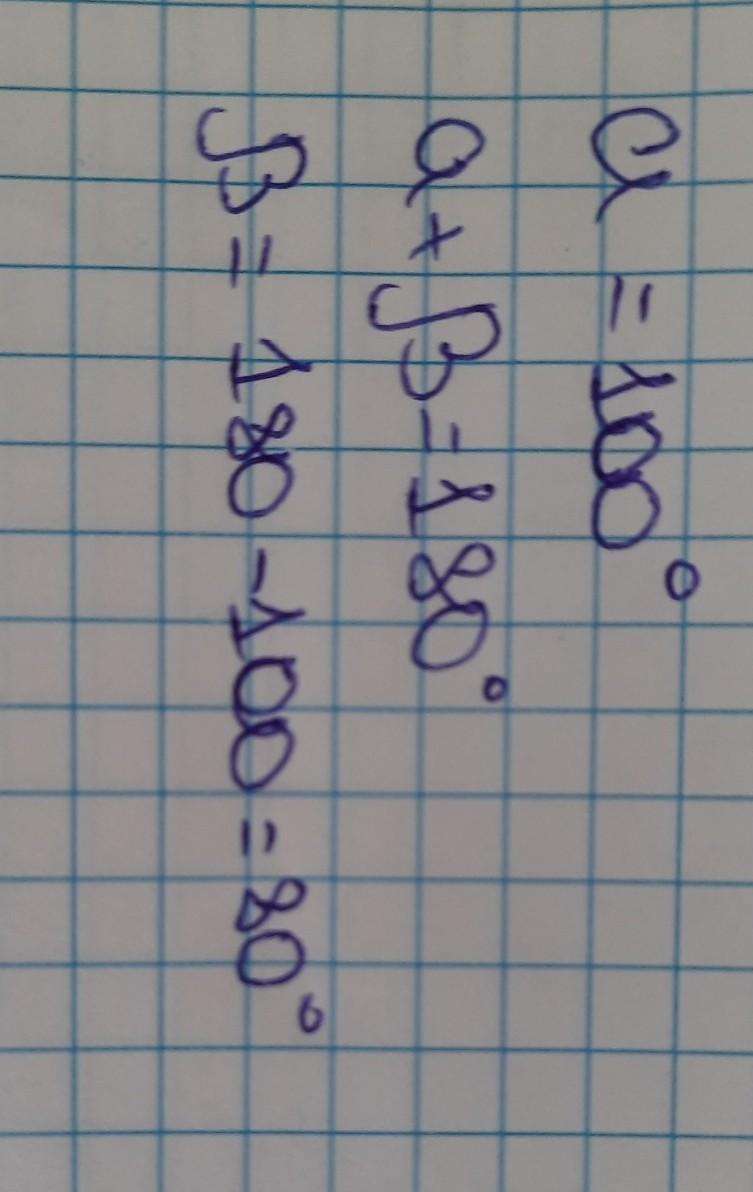 α = 100°
α + β = 180°
β = 180 - 100 = 80°